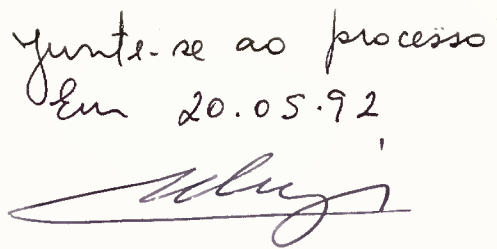 Junte-se ao processo
Em 20.05.92